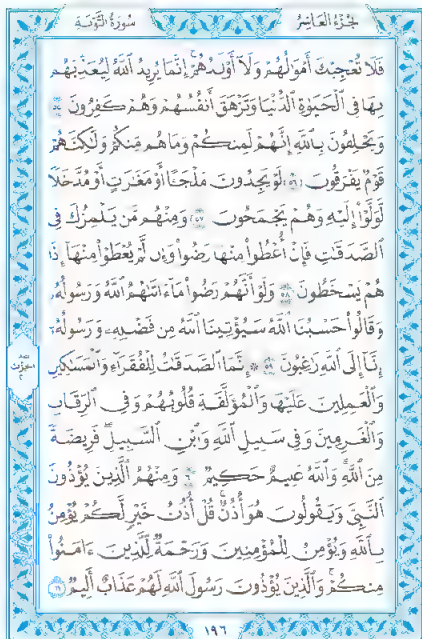 الجزء العاشر سورة التوبة
فَلَا تُعْجِبْكَ أَمْوَٰلُهُمْ وَلَآ أَوْلَٰدُهُمْ إِنَّمَا يُرِيدُ ٱللَّهُ لِيُعَذِّبَهُم
بِهَا فِى ٱلْحَيَوٰةِ ٱلدُّنْيَا وَتَزْهَقَ أَنفُسُهُمْ وَهُمْ كَٰفِرُونَ ٥٥
وَيَحْلِفُونَ بِٱللَّهِ إِنَّهُمْ لَمِنكُمْ وَمَا هُم مِّنكُمْ وَلَٰكِنَّهُمْ
قَوْمٌ يَفْرَقُونَ ٥٦ لَوْ يَجِدُونَ مَلْجَـًٔا أَوْ مَغَٰرَٰتٍ أَوْ مُدَّخَلًا
لَّوَلَّوْا۟ إِلَيْهِ وَهُمْ يَجْمَحُونَ ٥٧ وَمِنْهُم مَّن يَلْمِزُكَ فِى
ٱلصَّدَقَٰتِ فَإِنْ أُعْطُوا۟ مِنْهَا رَضُوا۟ وَإِن لَّمْ يُعْطَوْا۟ مِنْهَآ إِذَا
هُمْ يَسْخَطُونَ ٥٨ وَلَوْ أَنَّهُمْ رَضُوا۟ مَآ ءَاتَىٰهُمُ ٱللَّهُ وَرَسُولُهُۥ
وَقَالُوا۟ حَسْبُنَا ٱللَّهُ سَيُؤْتِينَا ٱللَّهُ مِن فَضْلِهِۦ وَرَسُولُهُۥٓ
إِنَّآ إِلَى ٱللَّهِ رَٰغِبُونَ ٥٩ ۞ إِنَّمَا ٱلصَّدَقَٰتُ لِلْفُقَرَآءِ وَٱلْمَسَٰكِينِ
وَٱلْعَٰمِلِينَ عَلَيْهَا وَٱلْمُؤَلَّفَةِ قُلُوبُهُمْ وَفِى ٱلرِّقَابِ
وَٱلْغَٰرِمِينَ وَفِى سَبِيلِ ٱللَّهِ وَٱبْنِ ٱلسَّبِيلِ فَرِيضَةً
مِّنَ ٱللَّهِ وَٱللَّهُ عَلِيمٌ حَكِيمٌ ٦٠ وَمِنْهُمُ ٱلَّذِينَ يُؤْذُونَ
ٱلنَّبِىَّ وَيَقُولُونَ هُوَ أُذُنٌ قُلْ أُذُنُ خَيْرٍ لَّكُمْ يُؤْمِنُ
بِٱللَّهِ وَيُؤْمِنُ لِلْمُؤْمِنِينَ وَرَحْمَةٌ لِّلَّذِينَ ءَامَنُوا۟
مِنكُمْ وَٱلَّذِينَ يُؤْذُونَ رَسُولَ ٱللَّهِ لَهُمْ عَذَابٌ أَلِيمٌ ٦١
١٩٦